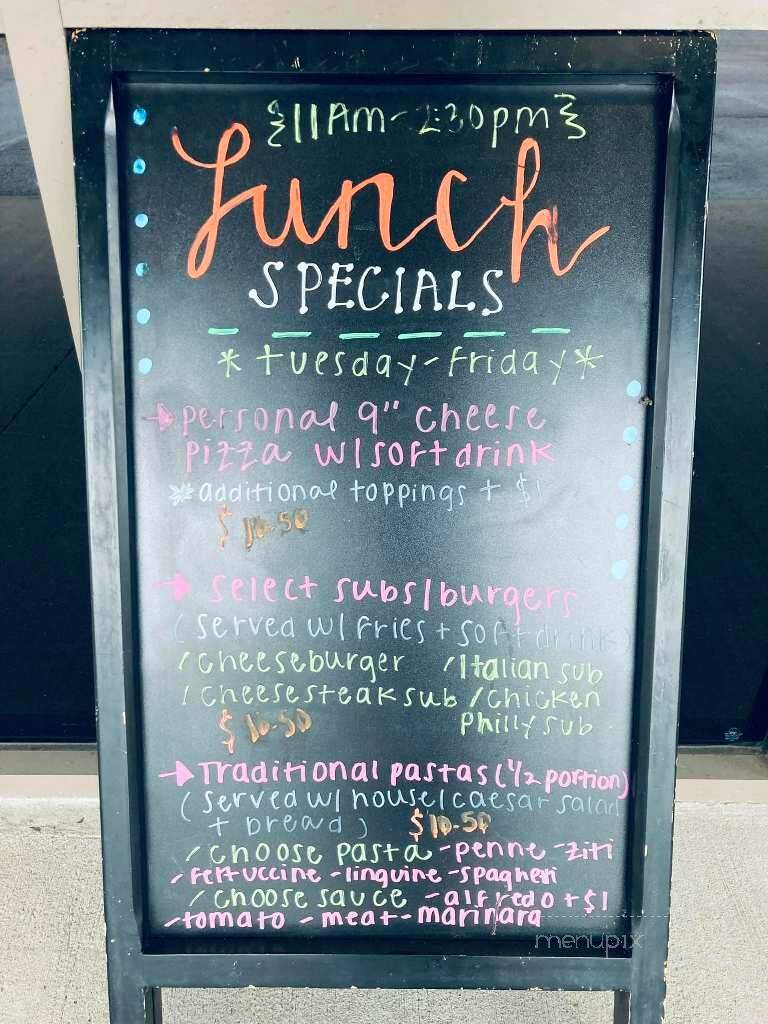 {11AM-2:30pm}
Lunch
SPECIALS
*tuesday-Friday*
→ personal 9" cheese
pizza w/soft drink
* additional toppings + $1
$10.50
→ select subs/burgers
(served w/ fries + soft drink)
/cheeseburger /Italian sub
/cheesesteak sub /chicken
Philly sub
$10.50
→ Traditional pastas (1/2 portion)
(served w/ house/caesar salad
+ bread) $10.50
/choose pasta -penne -ziti
-fettuccine -linguine -spaghetti
/choose sauce -alfredo +$1
-tomato -meat -marinara
menupix